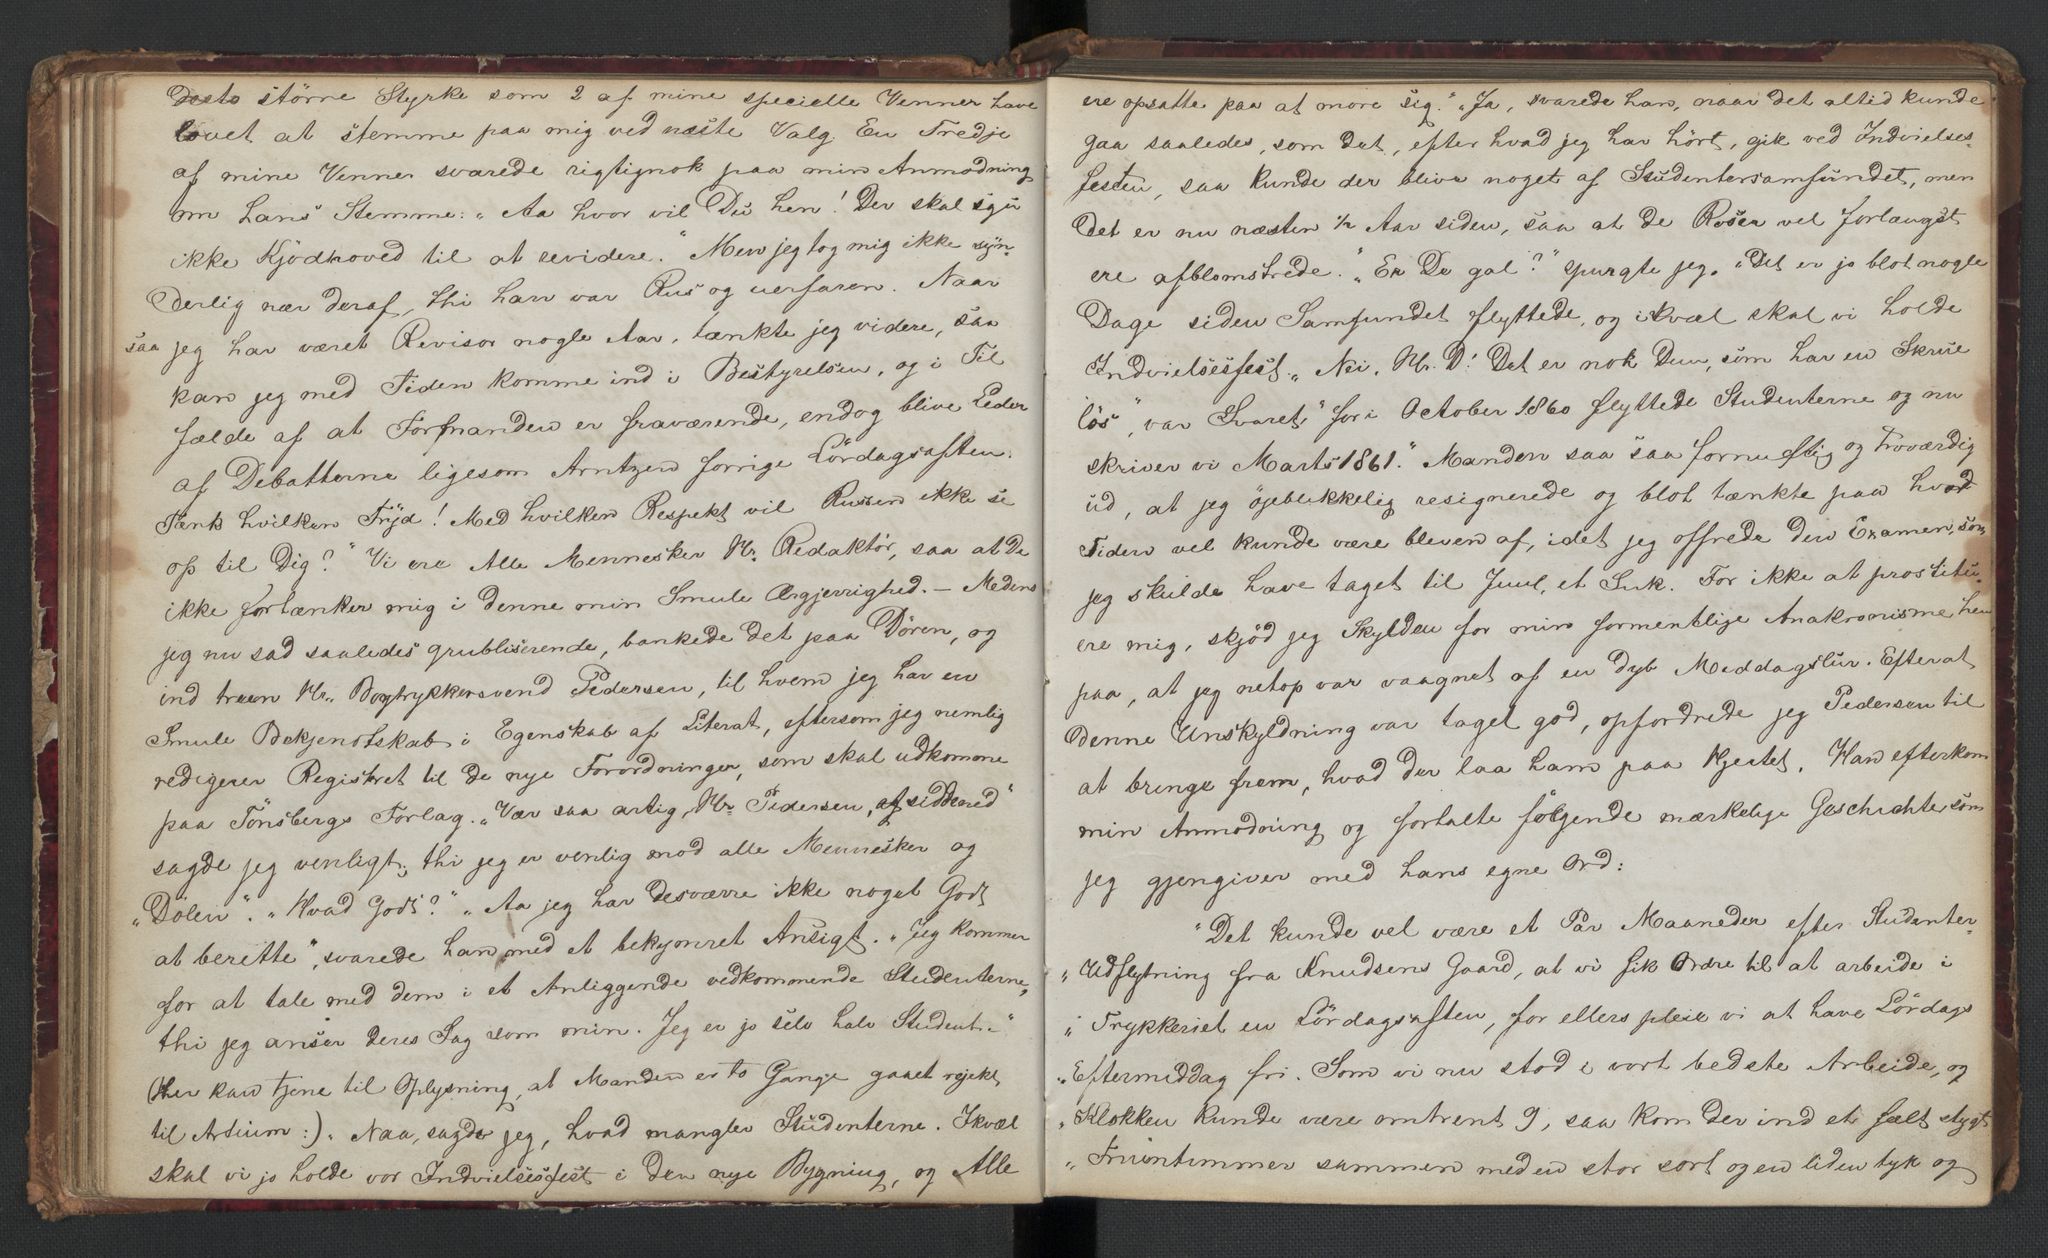 Desto större Styrke som 2 af mine specielle Venner have
lovet at stemme paa mig ved næste Valg. En Tredje
af mine Venner svarede rigtignok paa min Anmodning
om hans Stemme: „Aa hvor vil Du hen! Der skal sgu
ikke Kjödhoved til at revidere." Men jeg tog mig ikke syn-
derlig nær deraf, thi han var Rus og uerfaren. Naar
saa jeg har været Revisor nogle Aar, tænkte jeg videre, saa
kan jeg med Tiden komme ind i Bestyrelsen, og i Til
fælde af at Formanden er fraværende, endog blive Leder
af Debatterne ligesom Arntzen forrige Lördagsaften.
Tænk hvilken Fryd! Med hvilken Respekt vil Russen ikke se
op til Dig?" Vi ere Alle Mennesker Hr. Redaktör, saa at De
ikke fortænker mig i denne min Smule Ærgjerrighed. – Medens
jeg nu sad saaledes grubliserende, bankede det paa Dören, og
ind treen Hr. Bogtrykkersvend Pedersen, til hvem jeg har en
Smule Bekjendtskab i Egenskab af Literat, eftersom jeg nemlig
redigerer Registret til de nye Forordninger, som skal udkomme
paa Tönsbergs Forlag. „Vær saa artig, Hr Pedersen, at sidde ned"
sagde jeg venligt, thi jeg er venlig mod alle Mennesker og
„Dölen". „Hvad Godt?" „Aa jeg har desværre ikke noget Godt
at berette", svarede han med et bekymret Ansigt. „Jeg kommer
for at tale med dem i et Anliggende vedkommende Studenterne,
thi jeg anser deres Sag som min. Jeg er jo selv halv Student."
(Her kan tjene til Oplysning, at Manden er to Gange gaaet rejekt
til Artium:). „Naa, sagde jeg, hvad mangler Studenterne. Ikvæl
skal vi jo holde vor Indvielsesfest i den nye Bygning, og Alle
ere opsatte paa at more sig." „Ja, svarede han, naar det altid kunde
gaa saaledes, som det, efter hvad jeg har hört, gik ved Indvielses-
festen, saa kunde der blive noget af Studentersamfundet, men
det er nu næsten 1/2 Aar siden, saa at de Roser vel forlængst
ere afblomstrede." „Er De gal?" spurgte jeg. „Det er jo blot nogle
Dage siden Samfundet flyttede, og ikvæl skal vi holde
Indvielsesfest." „Nei, Hr. D! Det er nok Dem, som har en Skrue
lös", var Svaret, "for i October 1860 flyttede Studenterne og nu
skriver vi Marts 1861." Manden saa saa fornuftig og troværdig
ud, at jeg öjeblikkelig resignerede og blot tænkte paa hvad
Tiden vel kunde være bleven af, idet jeg offrede den Examen, som
jeg skulde have taget til Juul, et Suk. For ikke at prostitu-
ere mig, sköd jeg Skylden for min formentlige Anakronisme hen
paa, at jeg netop var vaagnet af en dyb Middagslur. Efterat
denne Unskyldning var taget god, opfordrede jeg Pedersen til
at bringe frem, hvad der laa ham paa Hjertet. Han efterkom
min Anmodning og fortalte fölgende mærkelige Geschichte, som
jeg gjengiver med hans egne Ord:
"Det kunde vel være et Par Maaneder efter Studenter-
„Udflytning fra Knudsens Gaard, at vi fik Ordre til at arbeide i
„Trykkeriet en Lördagsaften, for ellers pleie vi at have Lördags
„Eftermiddag fri. Som vi nu stod i vort bedste Arbeide, og
„Klokken kunde være omtrent 9, saa kom der ind et fælt stygt
„Fruentimmer sammen med en stor sort og en liden tyk og